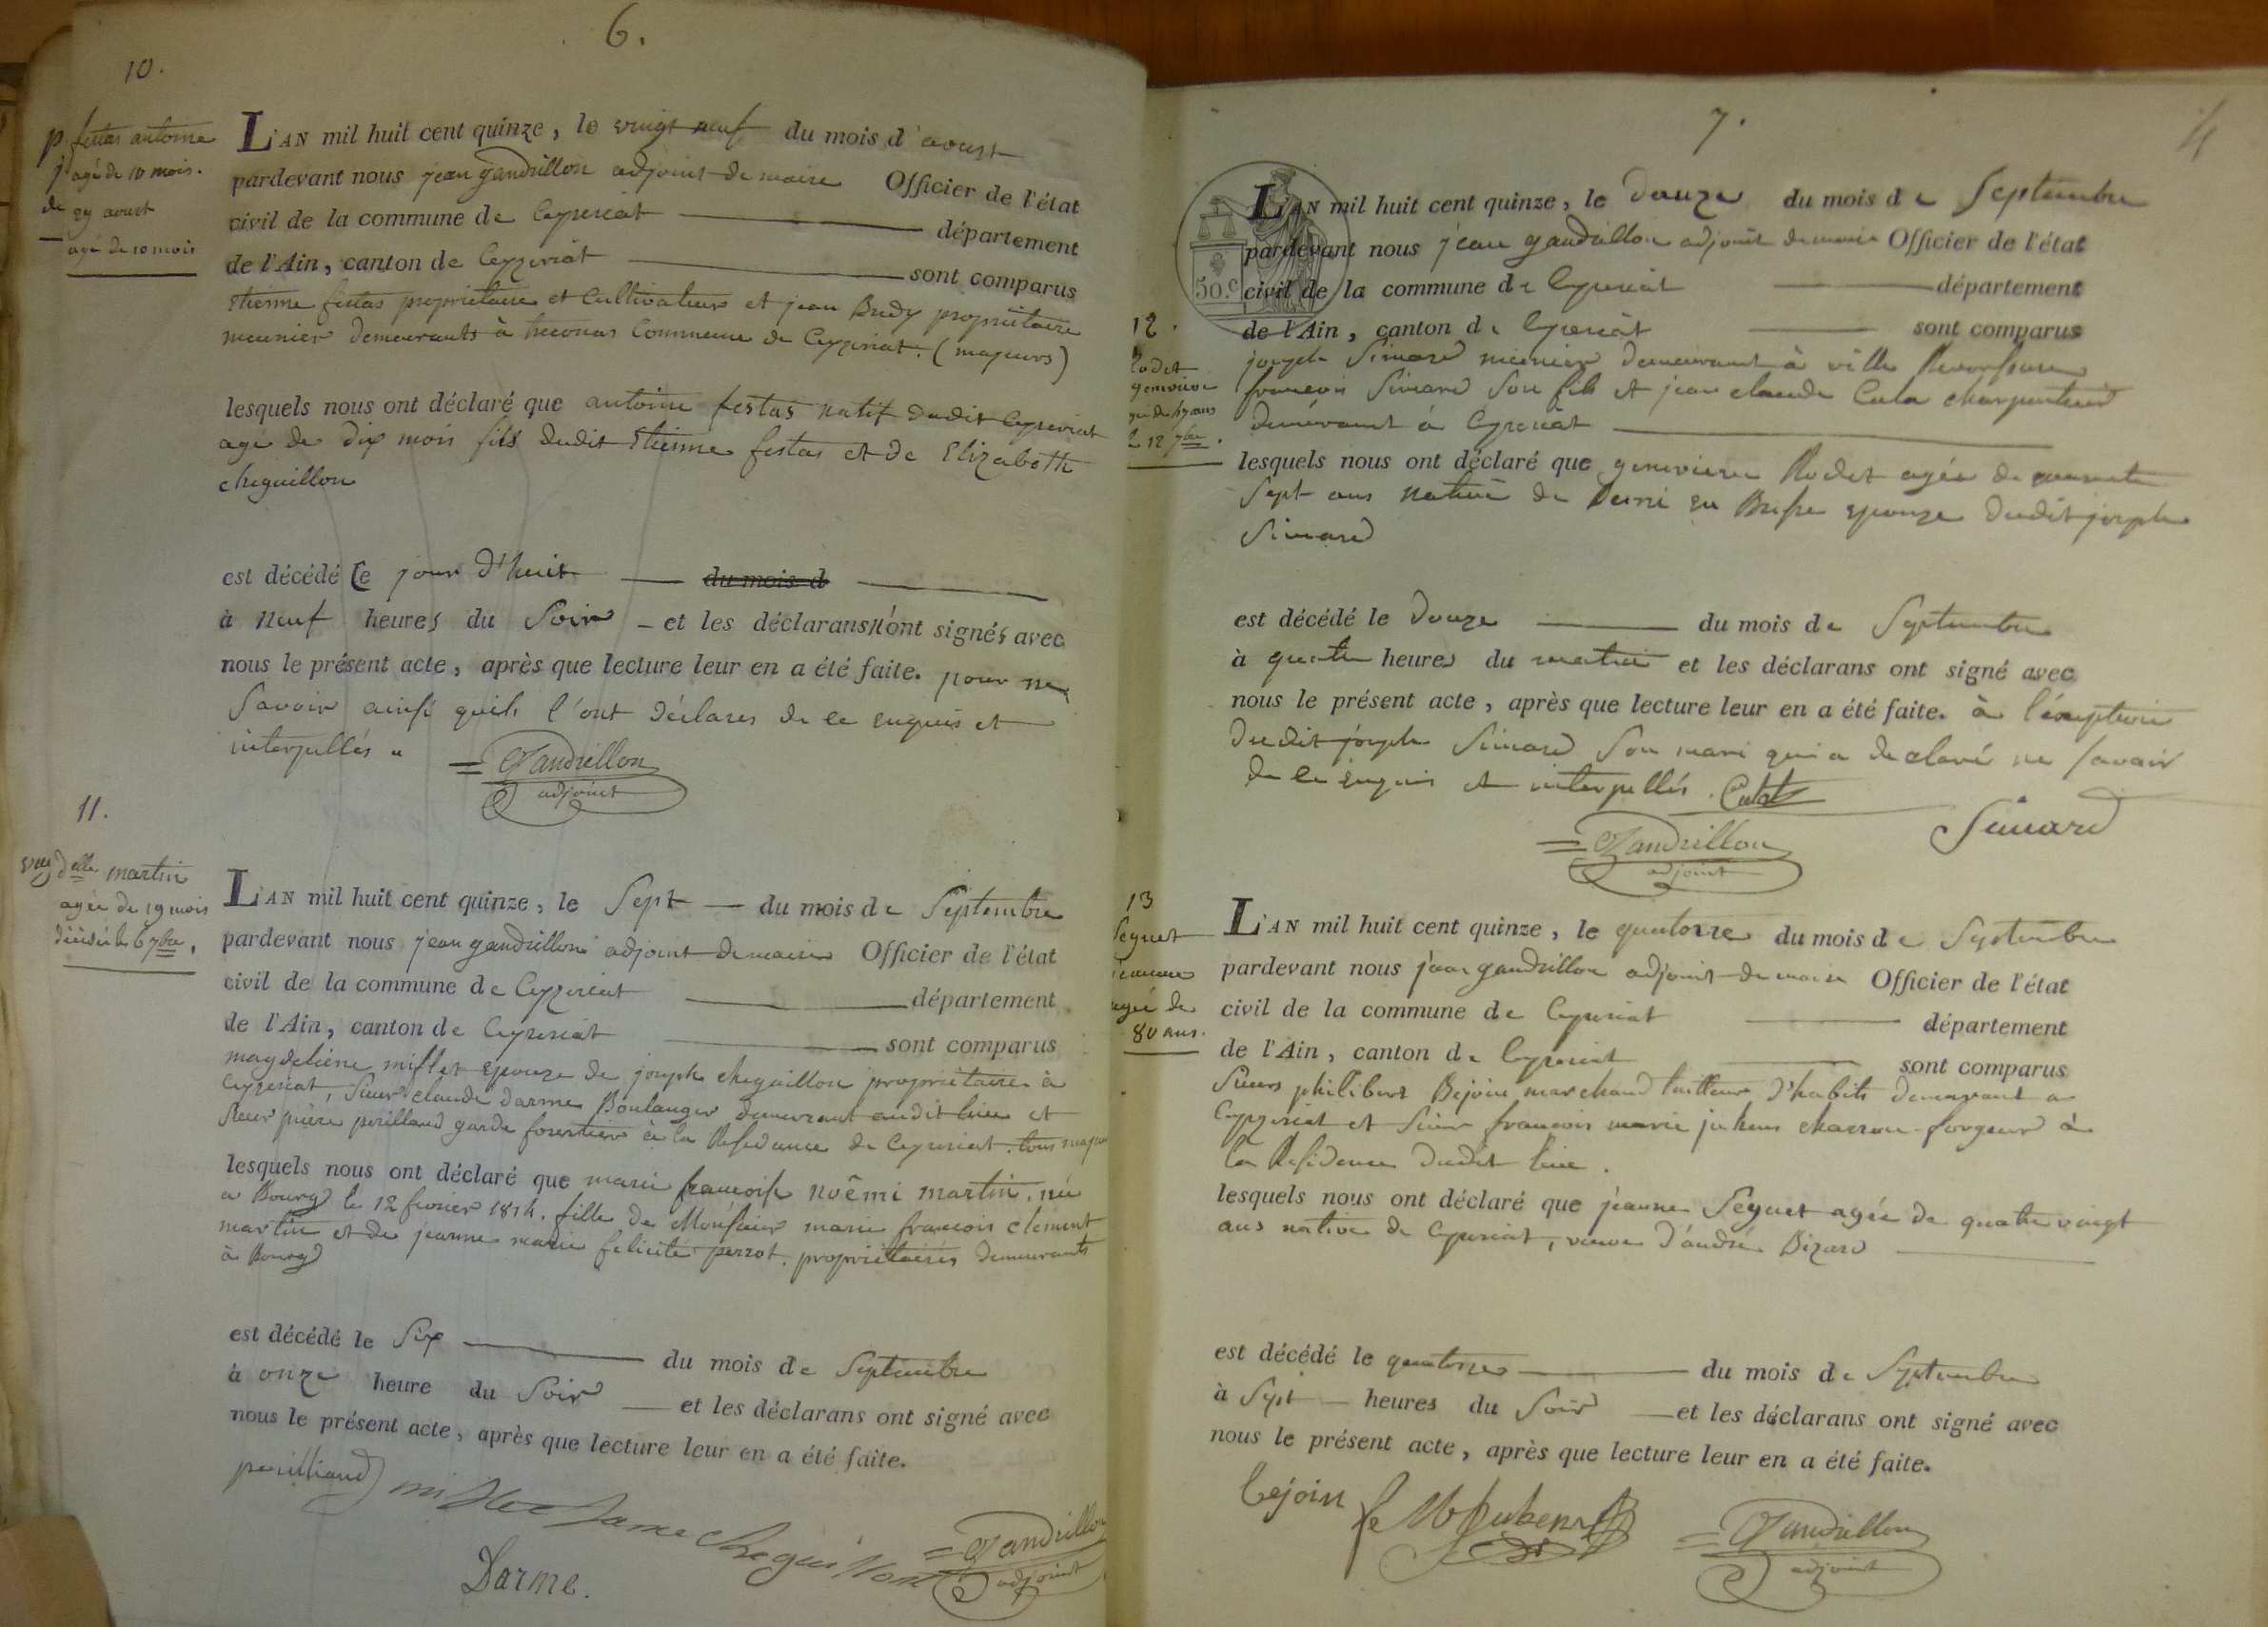 6.
10.
p festas antoine
agé de 10 mois.
de 29 aoust
agé de 10 mois
L'AN mil huit cent quinze, le vingt neuf du mois d'aoust
pardevant nous jean gandrillon adjoint de maire Officier de l'état
civil de la commune de Ceyzeriat département
de l'Ain, canton de Ceyzeriat sont comparus
Etienne festas proprietaire et Cultivateur et jean Budy proprietaire
meunier demeurants à treconas Commune de Ceyzeriat. (majeurs)
lesquels nous ont déclaré que antoine festas natif dudit Ceyzeriat
agé de dix mois fils dudit Etienne festas et de Elizabeth
cheguillon
est décédé Ce jour d'huit du mois d
à neuf heures du Soir et les déclarans n'ont signés avec
nous le présent acte, après que lecture leur en a été faite. pour ne
Savoir ainsi quils l'ont déclarés de ce enquis et
interpellés
Gandrillon
adjoint
11.
dlle martin
agée de 19 mois
décédée le 6 7bre.
L'AN mil huit cent quinze, le Sept du mois de Septembre
pardevant nous jean gandrillon adjoint de maire Officier de l'état
civil de la commune de Ceyzeriat département
de l'Ain, canton de Ceyzeriat sont comparus
magdeleine millet epouze de joseph cheguillon proprietaire à
Ceyzeriat, Sieur claude darme Boulanger demeurant audit lieu et
Sieur pierre perilland garde forestier à la Residance de Ceyzeriat. tous
lesquels nous ont déclaré que marie francoise noêmi martin, née
a Bourg le 12 fevrier 1814. fille de Monsieur marie francois clement
martin et de jeanne marie felicité perrot, proprietaires demeurants
à Bourg
est décédé le Six du mois de Septembre
à onze heure du Soir et les déclarans ont signé avec
nous le présent acte, après que lecture leur en a été faite.
perilliand millet fame cheguillon
Gandrillon
adjoint
Darme.
7.
4
50.c
12.
Rodet
genevieve
agée de 47 ans
le 12 7bre.
L'AN mil huit cent quinze, le Douze du mois de Septembre
pardevant nous jean gandrillon adjoint de maire Officier de l'état
civil de la commune de Ceyzeriat département
de l'Ain, canton de Ceyzeriat sont comparus
joseph Simard meunier demeurant à ville Reversure
francois Simard Son fils et jean claude Cula charpentier
demeurant à Ceyzeriat
lesquels nous ont déclaré que genevieve Rodet agée de quarante
Sept ans native de en Bresse epouze dudit joseph
Simard
est décédé le Douze du mois de Septembre
à quatre heures du matin et les déclarans ont signé avec
nous le présent acte, après que lecture leur en a été faite. à l'exeption
dudit joseph Simard Son mari qui a declaré ne Savoir
de ce enquis et interpellés.
Simard
Gandrillon
adjoint
13
Seguet
jeanne
agée de
80 ans.
L'AN mil huit cent quinze, le quatorze du mois de Septembre
pardevant nous jean gandrillon adjoint de maire Officier de l'état
civil de la commune de Ceyzeriat département
de l'Ain, canton de Ceyzeriat sont comparus
Sieurs philibert Bejoin marchand tailleur d'habits demeurant a
Ceyzeriat et Sieur francois marie juhens charron forgeur à
la Residence dudit lieu.
lesquels nous ont déclaré que jeanne Seguet agée de quatre vingt
ans native de Ceyzeriat, veuve d'andré Bizard
est décédé le quatorze du mois de Septembre
à Sept heures du Soir et les déclarans ont signé avec
nous le présent acte, après que lecture leur en a été faite.
bejoin
Gandrillon
adjoint